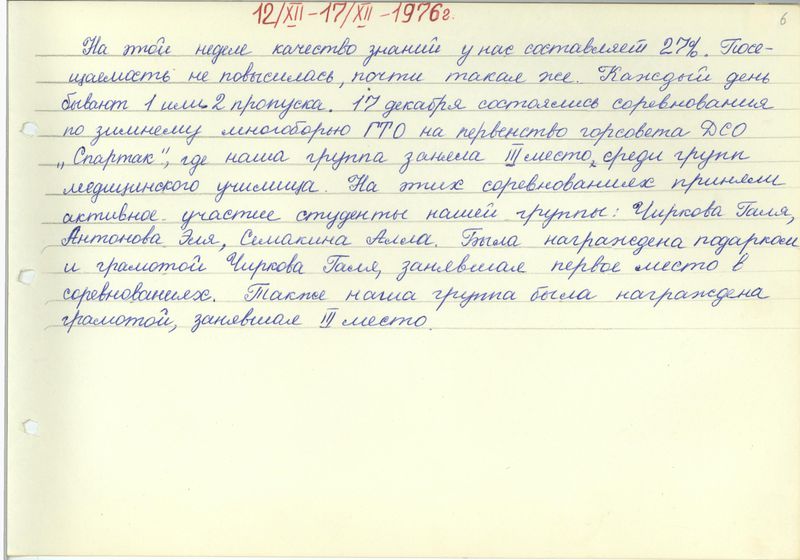 12/XII-17/XII-1976г.
6
На этой неделе качество знаний у нас составляет 27%. Посе-
щаемость не повысилась, почти такая же. Каждый день
бывают 1 или 2 пропуска. 17 декабря состоялись соревнования
по зимнему многоборью ГТО на первенство горсовета ДСО
„Спартак", где наша группа заняла III место, среди групп
медицинского училища. На этих соревнованиях приняли
активное участие студенты нашей группы: Чиркова Галя,
Антонова Эля, Семакина Алла. Была награждена подарком
и грамотой Чиркова Галя, занявшая первое место в
соревнованиях. Также наша группа была награждена
грамотой, занявшая III место.